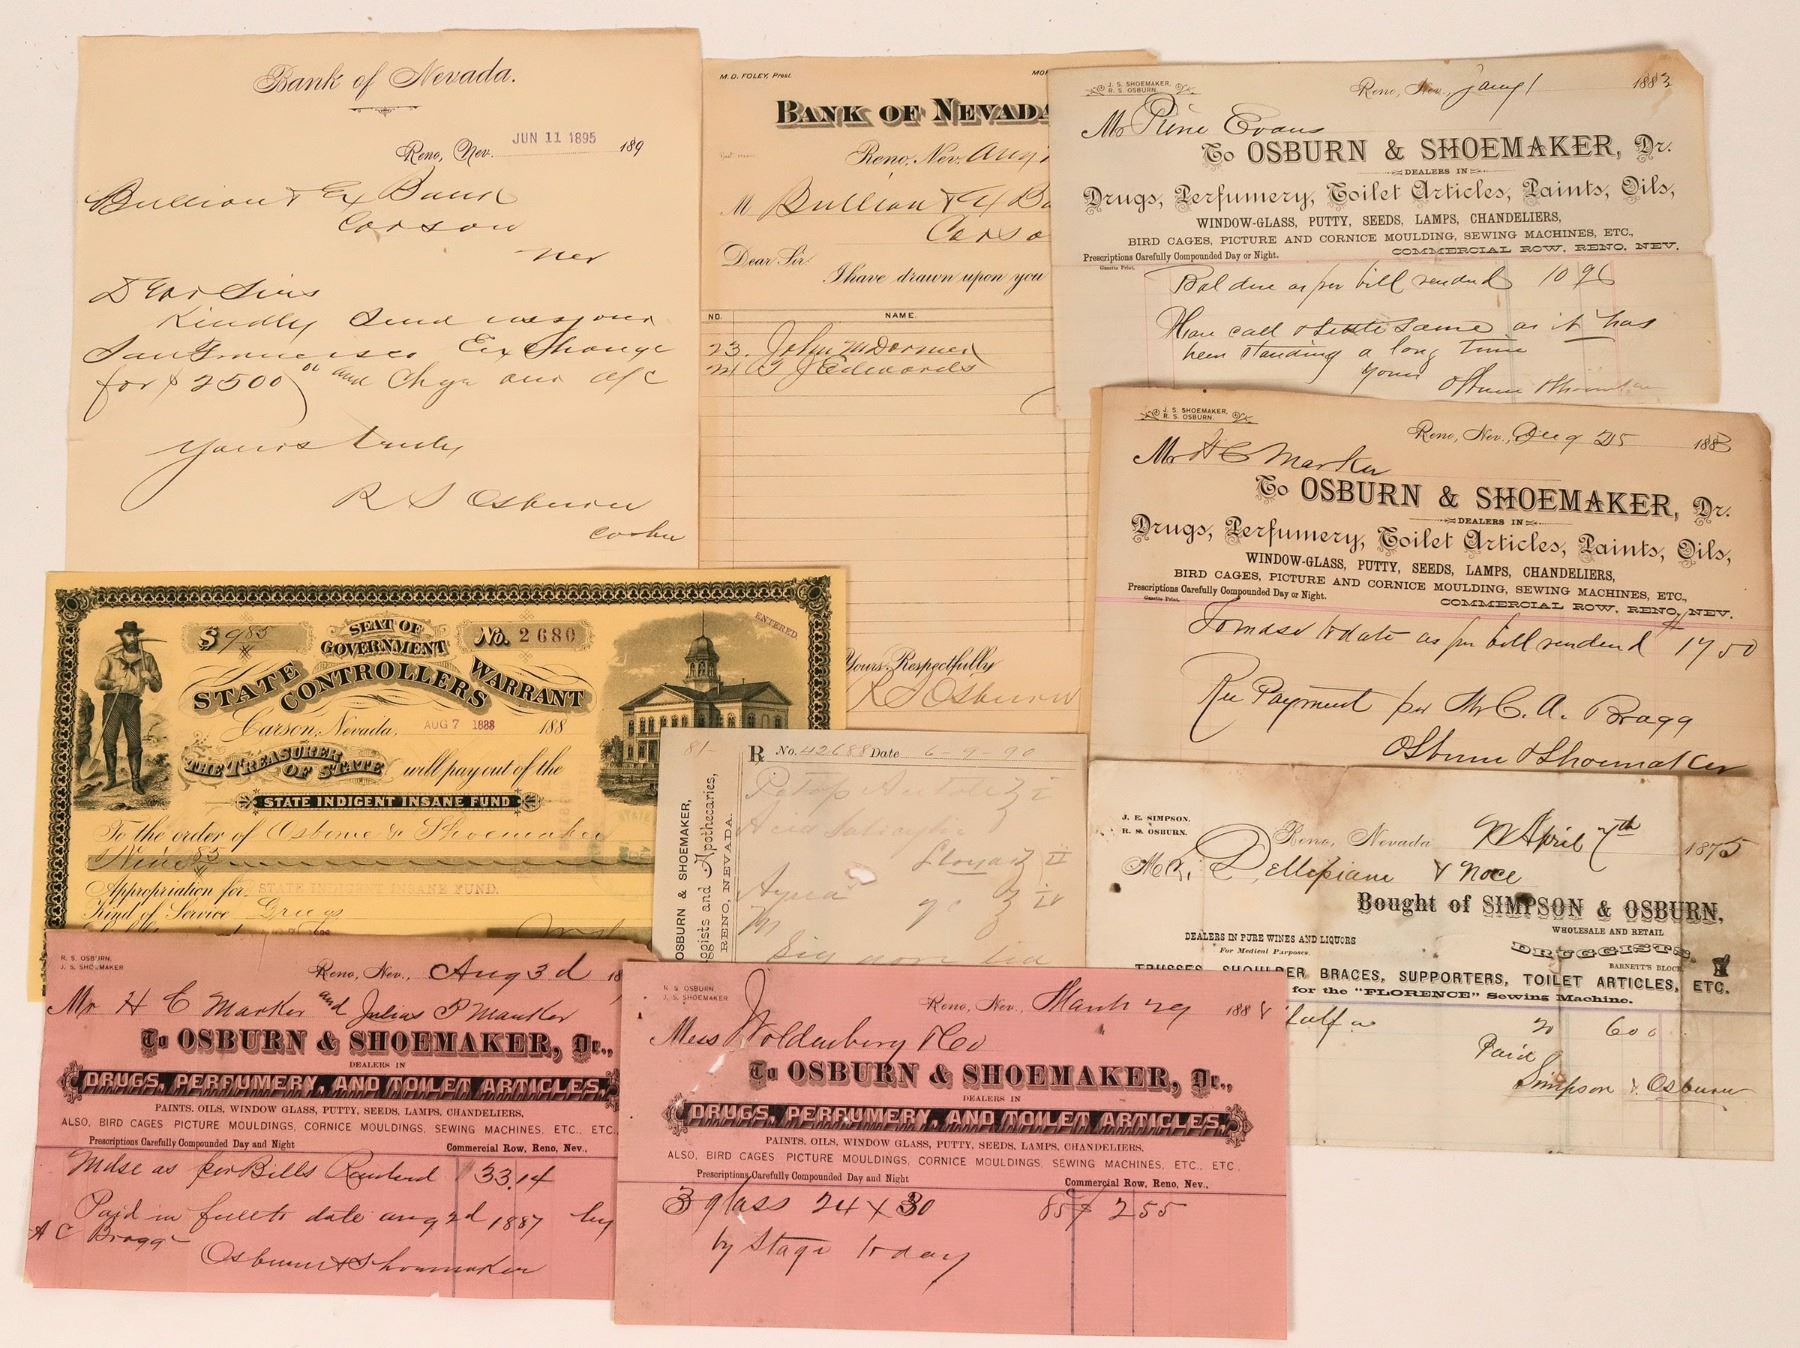 Bank of Nevada.
Reno, Nev. JUN 11 1895 189
Bullion & Ex Bank
Carson
Nev
Dear Sirs
Kindly send us your
San Francisco Exchange
for $2500 00 and Chge our a/c
Yours truly
R S Osburn
M. D. FOLEY, Prest.
BANK OF NEVADA
Reno, Nev. Aug
M Bullion & Ex Ba
Carso
Dear Sir:
I have drawn upon you
NO. NAME.
23. John McDormed
T J Edwards
Yours Respectfully
R S Osburn
J. S. SHOEMAKER,
R. S. OSBURN.
Reno, Nev., Jany 1 1883
Mr Rine Evans
To OSBURN & SHOEMAKER, Dr.
DEALERS IN
Drugs, Perfumery, Toilet Articles, Paints, Oils,
WINDOW-GLASS, PUTTY, SEEDS, LAMPS, CHANDELIERS,
BIRD CAGES, PICTURE AND CORNICE MOULDING, SEWING MACHINES, ETC.,
Prescriptions Carefully Compounded Day or Night. COMMERCIAL ROW, RENO, NEV.
Gazette Print.
Bal due as per bill rendered 10 96
call & settle same as it has
been standing a long time
Yours Osburn & Shoemaker
J. S. SHOEMAKER,
R. S. OSBURN.
Reno, Nev., Aug 25 1883
Mr H C Marker
To OSBURN & SHOEMAKER, Dr.
DEALERS IN
Drugs, Perfumery, Toilet Articles, Paints, Oils,
WINDOW-GLASS, PUTTY, SEEDS, LAMPS, CHANDELIERS,
BIRD CAGES, PICTURE AND CORNICE MOULDING, SEWING MACHINES, ETC.,
Prescriptions Carefully Compounded Day or Night. COMMERCIAL ROW, RENO, NEV.
Gazette Print.
To mdse to date as per bill rendered $ 17 50
Rec Payment per Mr C. A. Bragg
Osburn & Shoemaker
$ 9 85 SEAT OF GOVERNMENT No. 2680
ENTERED
STATE CONTROLLERS WARRANT
Carson, Nevada, AUG 7 1888 188
THE TREASURER OF STATE will pay out of the
STATE INDIGENT INSANE FUND
To the order of Osburn & Shoemaker
Nine 85
Appropriation for STATE INDIGENT INSANE FUND.
Kind of Service Drugs
81- ℞ No. 42688 Date 6-9-90
OSBURN & SHOEMAKER,
ggists and Apothecaries,
RENO, NEVADA.
J. E. SIMPSON.
R. S. OSBURN.
Reno, Nevada April 7th 1875
Mr. Dellepiane & Noce
Bought of SIMPSON & OSBURN,
WHOLESALE AND RETAIL
DEALERS IN PURE WINES AND LIQUORS
For Medical Purposes. DRUGGISTS.
BARNETT'S BLOCK
TRUSSES, SHOULDER BRACES, SUPPORTERS, TOILET ARTICLES, ETC.
for the "FLORENCE" Sewing Machine.
20 6 00
Paid
Simpson & Osburn
R. S. OSBURN,
J. S. SHOEMAKER
Reno, Nev., Aug 3d 18
Mr H C Marker and Julius P Marker
To OSBURN & SHOEMAKER, Dr.,
DEALERS IN
DRUGS, PERFUMERY, AND TOILET ARTICLES.
PAINTS, OILS, WINDOW GLASS, PUTTY, SEEDS, LAMPS, CHANDELIERS,
ALSO, BIRD CAGES PICTURE MOULDINGS, CORNICE MOULDINGS, SEWING MACHINES, ETC., ETC.
Prescriptions Carefully Compounded Day and Night Commercial Row, Reno, Nev.,
Mdse as per Bills Rendered $33.14
Paid in full to date aug 2d 1887 by
A C Bragg
Osburn & Shoemaker
R. S. OSBURN
J. S. SHOEMAKER
Reno, Nev., March 29 1888
Mess Woldenberg & Co
To OSBURN & SHOEMAKER, Dr.,
DEALERS IN
DRUGS, PERFUMERY, AND TOILET ARTICLES.
PAINTS, OILS, WINDOW GLASS, PUTTY, SEEDS, LAMPS, CHANDELIERS,
ALSO, BIRD CAGES PICTURE MOULDINGS, CORNICE MOULDINGS, SEWING MACHINES, ETC., ETC.
Prescriptions Carefully Compounded Day and Night Commercial Row, Reno, Nev.,
3 glass 24 x 30 85¢ 2 55
by Stage to day